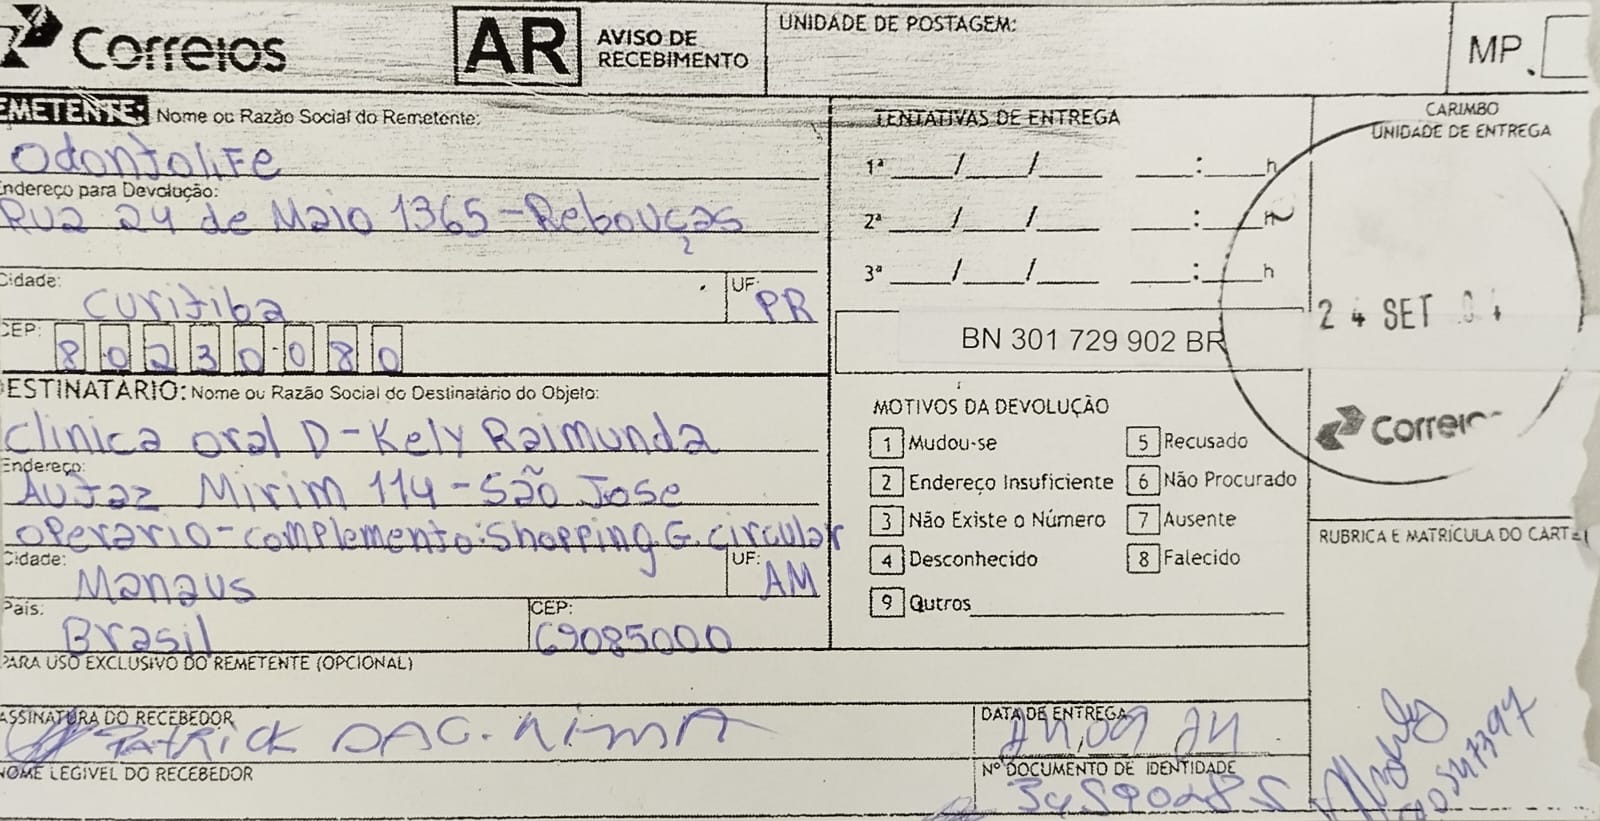 Correios
AR AVISO DE RECEBIMENTO
UNIDADE DE POSTAGEM:
MP.
EMETENTE: Nome ou Razão Social do Remetente:
OdontoLiFe
Endereço para Devolução:
Rua 24 de Maio 1365 - Rebouças
Cidade:
Curitiba
UF:
PR
CEP:
80230-080
DESTINATÁRIO: Nome ou Razão Social do Destinatário do Objeto:
Clinica oral D - Kely Raimunda
Endereço:
Autaz Mirim 114 - São Jose
operario - complemento: Shopping G. circular
Cidade:
Manaus
UF:
AM
País:
Brasil
CEP:
69085000
PARA USO EXCLUSIVO DO REMETENTE (OPCIONAL)
ASSINATURA DO RECEBEDOR
PATRICK
NOME LEGÍVEL DO RECEBEDOR
DATA DE ENTREGA
24,09 24
Nº DOCUMENTO DE IDENTIDADE
TENTATIVAS DE ENTREGA
1ª ____/____/____ ____:____h
2ª ____/____/____ ____:____h
3ª ____/____/____ ____:____h
BN 301 729 902 BR
MOTIVOS DA DEVOLUÇÃO
1 Mudou-se
2 Endereço Insuficiente
3 Não Existe o Número
4 Desconhecido
9 Outros
5 Recusado
6 Não Procurado
7 Ausente
8 Falecido
CARIMBO
UNIDADE DE ENTREGA
24 SET
Correio
RUBRICA E MATRÍCULA DO CARTE